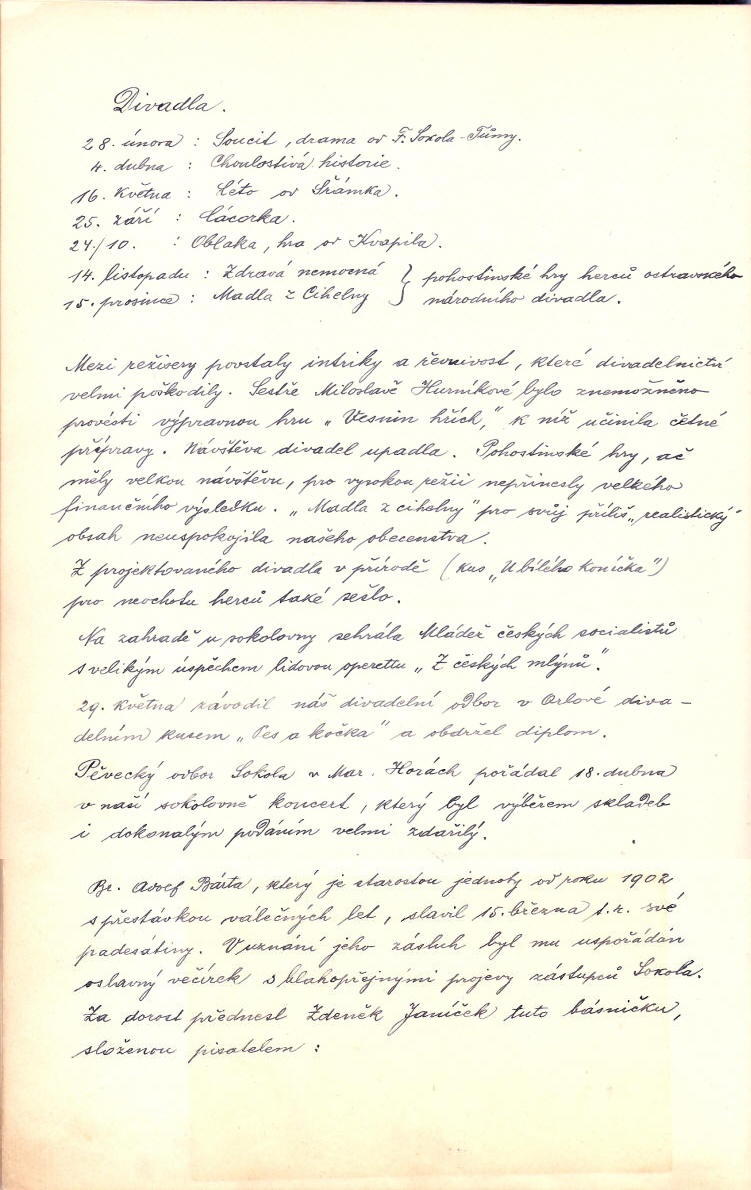 Divadla.
28. února : Soucit, drama od F. Sokola-Tůmy.
4. dubna : Choulostivá historie.
16. května : Léto od Šrámka.
25. září : Cácorka.
24/10. : Oblaka, hra od Kvapila.
14. listopadu : Zdravá nemocná } pohostinské hry herců ostravského
15. prosince : Madla z Cihelny } národního divadla.
Mezi režisery povstaly intriky a řevnivost, které divadelnictví
velmi poškodily. Sestře Miloslavě Hurníkové bylo znemožněno
provésti výpravnou hru „Vesnin hřích," k níž učinila četné
přípravy. Návštěva divadel upadla. Pohostinské hry, ač
měly velkou návštěvu, pro vysokou režii nepřinesly velkého
finančního výsledku. „Madla z cihelny" pro svůj příliš „realistický"
obsah neuspokojila našeho obecenstva.
Z projektovaného divadla v přírodě (kus „U bílého koníčka")
pro neochotu herců také sešlo.
Na zahradě u sokolovny sehrála Mládež českých socialistů
s velikým úspěchem lidovou operettu „Z českých mlýnů".
29. května závodil náš divadelní odbor v Orlové diva-
delním kusem „Pes a kočka" a obdržel diplom.
Pěvecký odbor Sokola v Mar. Horách pořádal 18. dubna
v naší sokolovně koncert, který byl výběrem skladeb
i dokonalým podáním velmi zdařilý.
Br. Adolf Bárta, který je starostou jednoty od roku 1902
s přestávkou válečných let, slavil 15. března t. r. své
padesátiny. V uznání jeho zásluh byl mu uspořádán
oslavný večírek s blahopřejnými projevy zástupců Sokola.
Za dorost přednesl Zdeněk Janíček tuto básničku,
složenou pisatelem :